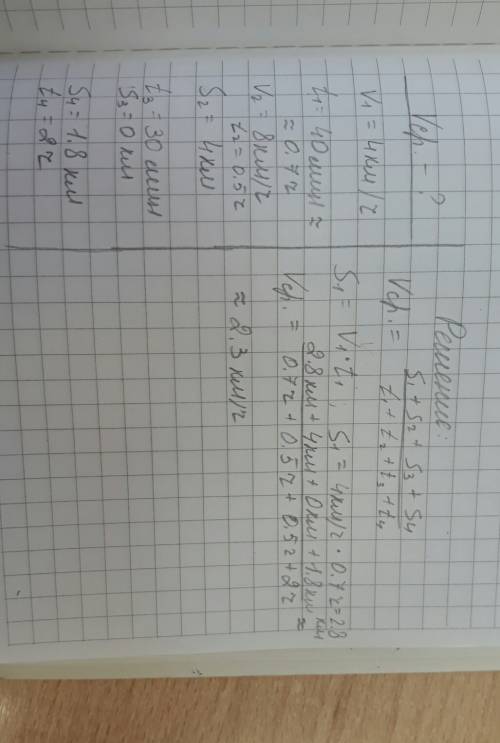 Vср. - ?
V1 = 4км/ч
t1 = 40 мин ≈
≈ 0.7ч
V2 = 8км/ч
t2 = 0.5ч
S2 = 4км
t3 = 30 мин
S3 = 0 км
S4 = 1.8 км
t4 = 2ч
Решение:
Vср. = S1 + S2 + S3 + S4 / t1 + t2 + t3 + t4
S1 = V1 · t1 ; S1 = 4км/ч · 0.7ч = 2.8 км
Vср. = 2.8км + 4км + 0км + 1.8км / 0.7ч + 0.5ч + 0.5ч + 2ч ≈
≈ 2.3 км/ч